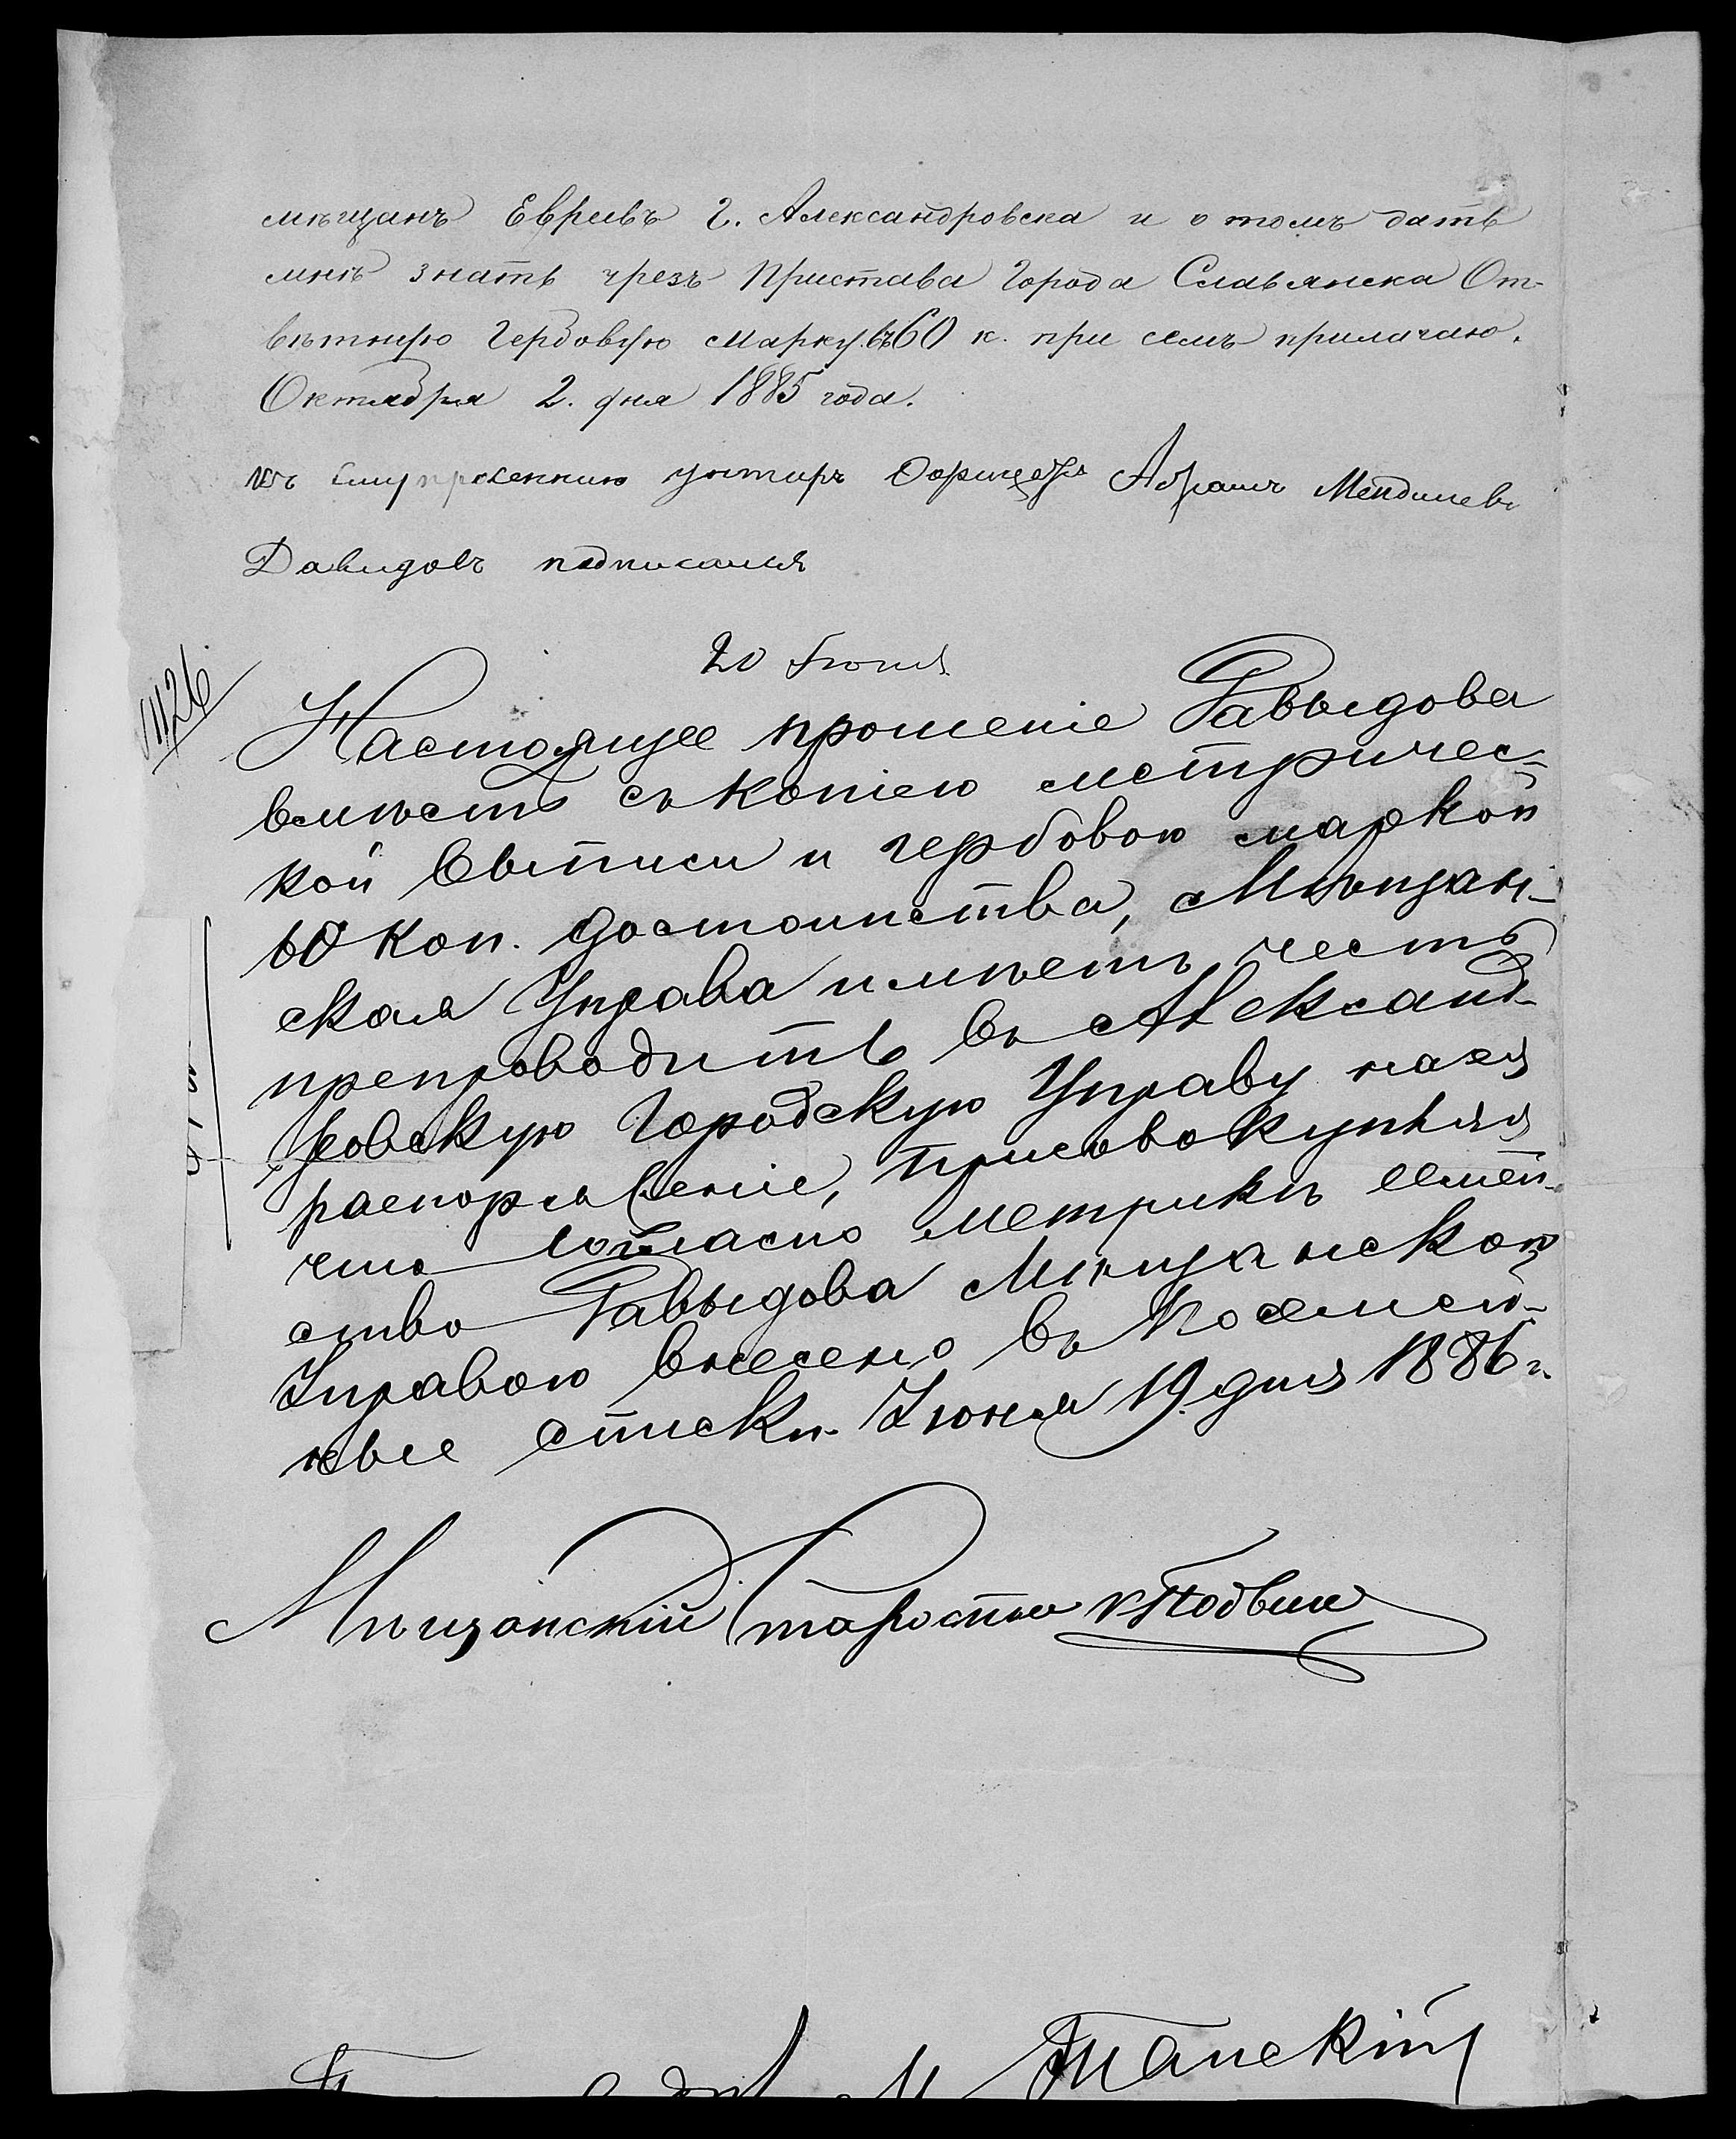 мѣщанъ Евреевъ Г. Александровска и о томъ дать
мнѣ знать чрезъ Пристава Города Славянска От-
вѣтную Гербовую Марку въ 60 к. при семъ прилагаю.
Октября 2. дня 1885 года.
къ сему прошению унтеръ Офицеръ Абрамъ Менделевъ
Давидовъ подписался
20 Іюня
1126
Настоящее прошеніе Давыдова
вмѣстѣ съ копіею метричес-
кой выписи и гербовою маркой
60 коп. достоинства, Мѣщан-
ская Управа имѣетъ честь
препроводить въ Александ-
ровскую Городскую Управу на
распоряженіе, присовокупляя
что согласно метрикѣ семей-
ство Давыдова Мѣщанской
Управою внесено въ посемей-
ные списки. Іюня 19. дня 1886 г.
Мѣщанскій Староста